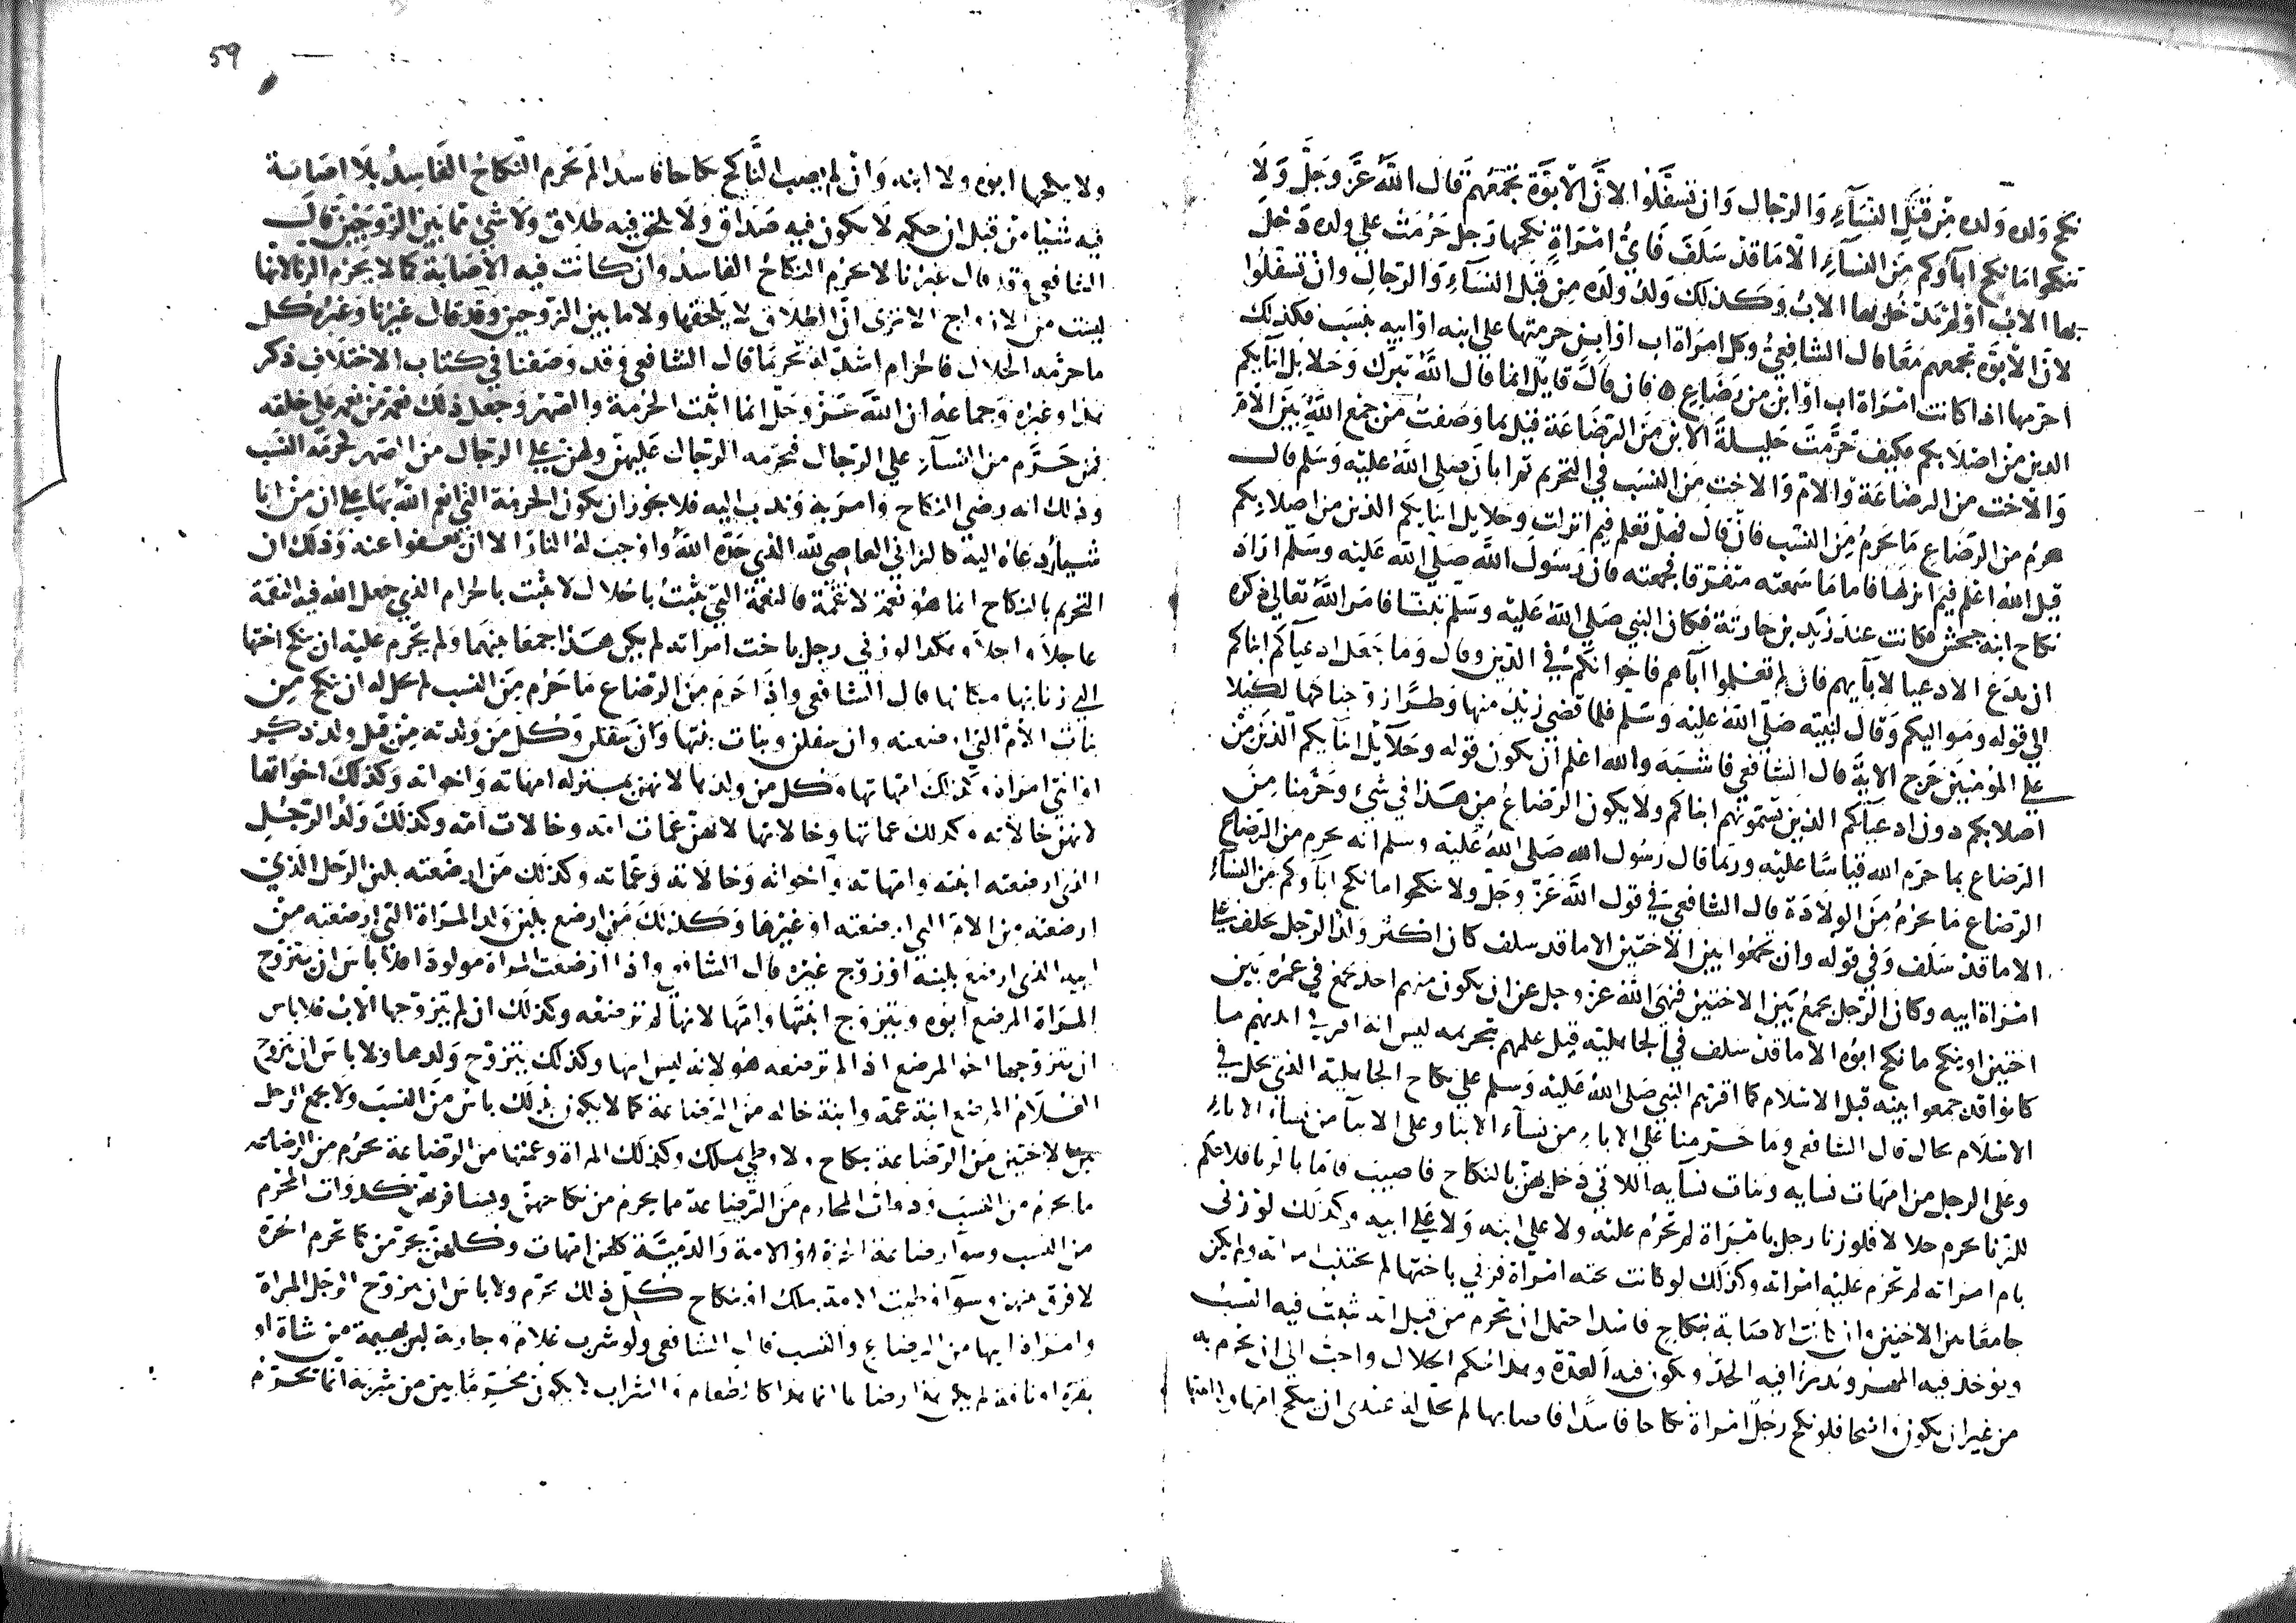 نكح وَلده وَلده مِن قِبَل النسَآءِ وَالرجال وَان تسفَّلوا لانَّ الابوّة تجمعُهم قال اللهُ عزَّ وَجلَّ وَلَا
تنكحوا مَا نكح آباؤكم مِنَ النسَآءِ الا مَا قدْ سَلَفَ فَايُّ امْرَاةٍ نكحها رَجل حَرُمَتْ علي ولده دَخلَ
بها الابُ اوْ لم يَدخُل بها الابُ وَكَذلك وَلدُ ولَده مِن قِبَل النسَآءِ وَالرجالِ وانْ تسفلُوا
لانّ الابوّة تجمعهم مَعًا قال الشافعيُّ وكل امرَاة اب او ابن حرمتها علي ابنه او ابيه بنسَب فكذلك
احرمها اذا كانت امْرَاة اب اوْ ابن من رَضَاعِ ه فان قالَ قايلٌ انما قال اللهُ تبرَك وَحَلايل ابنآيكم
الذين منْ اصْلابكم فكيف حَرَّمتَ حَليلةَ الابن مِنَ الرَضَاعَة قيل بما وَصَفتُ منْ جمْع اللهُ بَيْن الاُمّ
وَالاخت من الرضاعَة وَالامّ وَالاخت مِنَ النسَب في التحريم ثم ابان صَلي اللهُ عليْه وَسَلم قال
يحرمُ من الرضَاعِ مَا يحَرمُ مِنَ النسَب فانْ قالَ فهَلْ تعلم فيم انزلت وحلايل ابنايكم الذين من اصلابكم
قيل اللهُ اعْلم فيمَ انزلها فاما مَا سَمعته متفرقا فجمعته فان رَسُولَ الله صَلي الله عَليْه وسَلم ارَادَ
نكاح ابنة جحش فكانت عندَ زيْد بن حارثة فكان النبي صَلي اللهُ عَليْه وَسَلم تبنّاه فامَر اللهُ تعالي ذكره
ان يدعَ الادعيا لابآيهم فانْ لم تعْلموا آبآهم فاخوانكمْ في الدّين وقال وَما جَعَل ادعيآكم ابناكم
الي قوله ومَواليكم وَقال لنبيّه صَلي اللهُ عليْه وَسَلم فلما قضي زيْد منها وَطرًا زوّجناكها لكيْلا
علي المؤمنين حَرج الايَة قال الشافعي فاشبَه والله اعْلم انْ يكون قوله وحَلآيلُ ابنآيكم الذينَ منْ
اصلابكم دون ادعيآكم الذين تسَمونهم ابناكم ولا يكون الرَضاعُ مِن هَذا في شيء وَحَرَّمنا مِنَ
الرَضاع بما حَرّم الله قياسًا عليْه وبما قال رَسُول الله صَلي اللهُ عَليْه وسلم انه يحرم من الرضاع
الرضاع مَا يحرُمُ مِنَ الولادَة قال الشافعيُ في قول اللهَ عَزّ وجَلّ ولا تنكحوا ما نكح ابآؤكم مِنَ النسآءِ
الا ما قدْ سَلفَ وَفي قوله وان تجمعُوا بين الاُختين الا ما قد سلف كان اكبر وَلد الرّجل يخلف علي
امْرَاة ابيه وكان الرّجل يجمعُ بَيْن الاختيْن فنهَي اللهُ عز وجل عن ان يكون منهم احد يجمع في عمُره بَيْن
اختين او ينكح ما نكح ابوُه الا ما قدْ سَلف في الجاهليّة قبل علمهم بتحريمه ليس انه اقر في ايديهم ما
كانوا قد جمعوا بينه قبل الاسْلام كما اقرهم النبي صَلي اللهُ عَليْه وَسلم علي نكاح الجاهلية الذي يحل في
الاسْلام بحال قال الشافعي وَما حَرّمنا عَلي الابآءِ من نسآءِ الابنا وعلي الابنآ من نسآء الابآء
وعَلي الرجل من امّهات نسايه وَبنات نسآيه اللاتي دَخل بهنّ بالنكاح فاصيب فامّا بالزنا فلا حكم
للزنا يحرم حلالا فلو زنا رجل بامْرَاة لم تحْرُم عليْه ولا علي ابنه وَلا عَلي ابيه وكذلك لوْ زنى
بام امراته لم تحرم عليْه امْراته وكذلك لوْ كانت تحته امْراة فزني باختها لم يجتنب امراته ولم يكن
جامعًا بين الاختين وان كانت الاصَابة بنكاح فاسد احتمل ان تحرم من قبل انه يثبتُ فيه النسَبُ
ويُوخذ فيه المهر ويُدرَا فيه الحدّ ويكون فيه العدّة وهذا حكم الحلال واحبُّ الي ان يحرم به
من غير ان يكون واضحا فلو نكح رَجلٌ امْراة نكاحا فاسدًا فاصابها لم يحل له عندي ان ينكح امّها ولا ابنتها
59
ولا ينكحها ابوُه ولا ابنه وَانْ لم يصِب النَّاكح نكاحا فاسدا لم يَحرم النكاحُ الفَاسِدُ بلا اصَابَة
فيه شيْيا من قبل ان حكمه لا يكون فيه صَدَاق وَلَا يلحق فيه طلاق ولا شيْ ممّا بَيْن الزوجَيْن قالَ
الشافعي وقد قال غيرنا لا يحرم النكاحُ الفاسد وان كانت فيه الاصَابَة كما لا يحرم الزنا لانها
ليست من الازواج الا تري انّ الطلاق لا يَلحقها ولا ما بين الزوجين وقد قال غيْرنا وَغيْرُه كل
ما حرّمه الحلال فالحرام اشدّ له تحريمًا قال الشافعي وَقد وَصَفنا في كتاب الاختلاف ذكر
هذا وغيْرِه وَجماعهُ ان الله عَزّ وَجلّ انما اثبت الحُرمة والصّهْر وَجعل ذلك نعمة من نعمه علي خلقه
فمن حَرّم من النسآءِ علي الرجال فبحُرمه الرجال عَليهنّ ولهنّ علي الرجال من الصّهر كحُرمة النَسَب
وذلك انه رَضي النكاح وَامَر به وَندَب اليه فلا يجوز ان يكون الحرمة التي انعم الله بها علي ان منْ ابا
شيْياً دعَاهُ اليه كالزاني العاصي لله الذي حَدّه اللهُ واوْجبَ لهُ النار الا انْ يعفوا عنه وَذلك ان
التحريم بالنكاح انما هُوَ نعمة لا نقمة فالنعمة التي تثبُتُ بالحلال لا تثبت بالحرام الذي جعل الله فيه النقمة
عاجلا واجلا وهكذا لو زني رجل باخت امراته لم يكن هَذا جمعًا بيْنهمَا ولم يحْرم عليْه ان ينكح اختها
الي زنا بها مكانها قال الشافعي واذا حَرمَ مِنَ الرضاع مَا حَرُم مِنَ النسب لم يحل له ان ينكح مِن
بنات الاُمّ التي ارضعته وان سفلن وبنات بنتها وَان سَفلن وَكل مَن وَلدته مِن قبل ولد ذكر
او انثي امراة وكذلك امّهاتها وكل من ولدها لانهن بمنزله امهاته وَاخواته وَكذلك اخواتها
لانهنّ خالاته وكذلك عماتها وخالاتها لانهنّ عمات امّه وخالات امّه وكذلك وَلدُ الرّجُل
الذي ارضعته ابنته وامّهاته وَاخوانه وَخالاته وَعمّاته وكذلك مَن ارضَعته بلبن الرَّجل الَّذي
ارضعته من الامّ التي ارضعته اوْ غيْرهَا وَكَذلك مَن ارضع بلبن وَلد المرْاة التي ارضعته منْ
ابيه الذي ارضع بلبنه اوْ زوْج غيْره قال الشافعي واذا ارْضعَت المراة مولودًا فلا بأسَ ان يتزوّج
المرْاة المرضع ابوُه ويتزوّج ابنتها وامّها لانها لم ترضعْه وكذلك ان لم يتزوّجها الابُ فلا باس
ان يتزوّجها اخو المرضع اذا لم ترضعه هو لانه ليس ابنها وكذلك يتزوّج وَلدهما ولا باسَ ان يتزوّج
الغلام المرضع ابنة عمّه وابنة خاله من الرضاعة كما لا يكون بذلك باسٌ مِنَ النسَب ولا يجمع الرجل
بين الاختين مِنَ الرضاعة بنكاح ولا وطي بملك وكذلك المراة وعمّتها من الرضاعة يحرُم من الرضاعة
ما يحرم من النسَب وذوات المحارم مِنَ الرضاعة مما يحرم من نكاحهنّ ويسَافر بهنّ كذوات المحرم
من النسب وسوآ رضاعة الحُرة والامة وَالذِمّيّة كلهنّ امّهات وكلهنّ يحرّمن كما تحرم الحرّة
لا فرق بينهن وسوآ وُطيت الامة بملك او بنكاح كل ذلك يحرّم ولا باس ان يتزوّج الرّجل المراة
وامرَاة ابيها من الرضاع والنسب قال الشافعي ولو شرب غلامٌ وجارية لبن بهيمة من شاة او
بقرة او ناقة لم يكن هذا رضاعا انما هذا كالطعام وَالشراب لا يكون مُحَرِمًا بين من شربَهُ انما يحَرّمُ